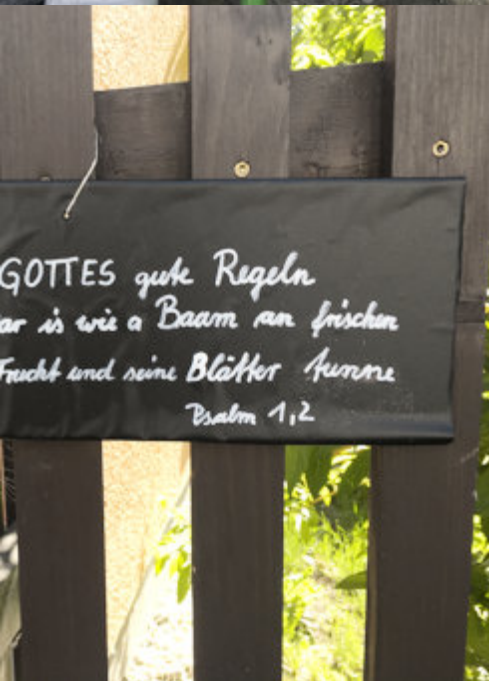 GOTTES gute Regeln
ar is wie a Baam an frischen
Frucht und seine Blätter tunne
Psalm 1,2